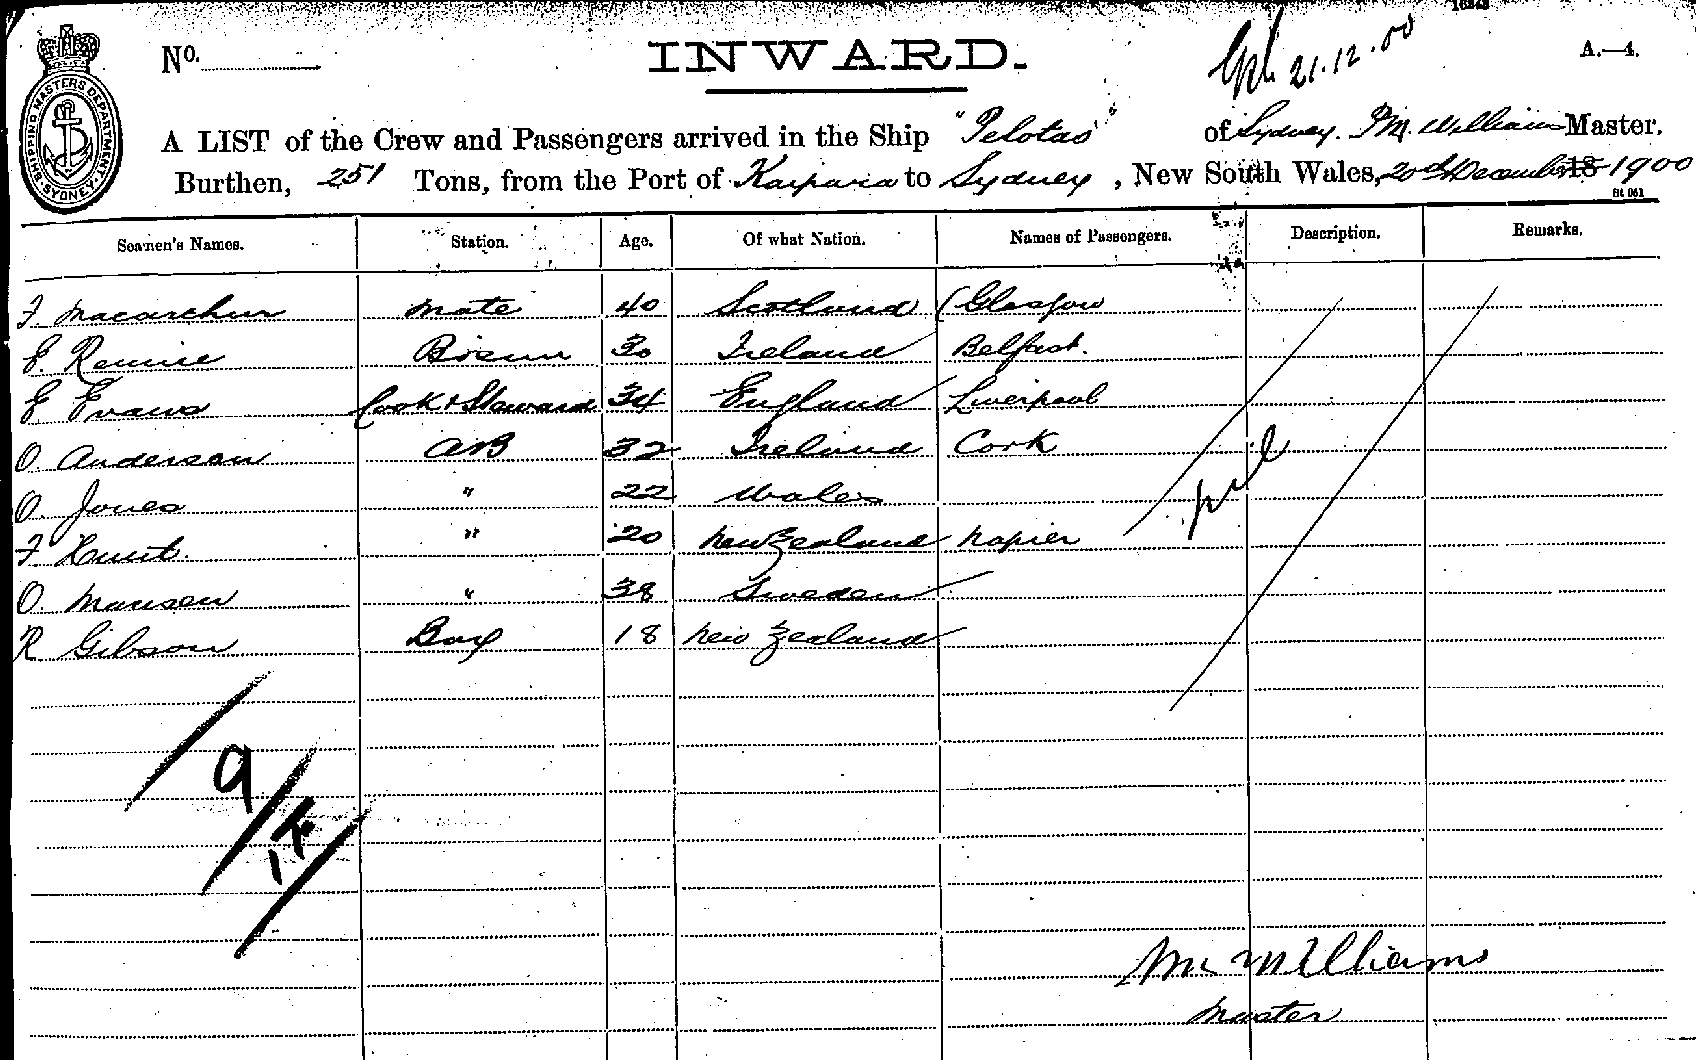 No.
INWARD.
21.12.00
A.—4.
SHIPPING MASTERS DEPARTMENT. SYDNEY.
A LIST of the Crew and Passengers arrived in the Ship "Pelotas" of Sydney. Williams Master.
Burthen, 251 Tons, from the Port of Kaipara to Sydney, New South Wales, 20th December 18 1900
Seamen's Names. Station. Age. Of what Nation. Names of Passengers. Description. Remarks.
F. Macarthur Mate 40 Scotland (Glasgow
E. Rennie Bosun 30 Ireland Belfast.
E Evans Cook & Steward 34 England Liverpool
O. Anderson AB 32 Ireland Cork
O. Jones " 22 Wales
F. Hunt. " 20 New Zealand Napier
O. Mansen " 38 Sweden
R Gibson Boy 18 New Zealand
nil
9
M Williams
Master